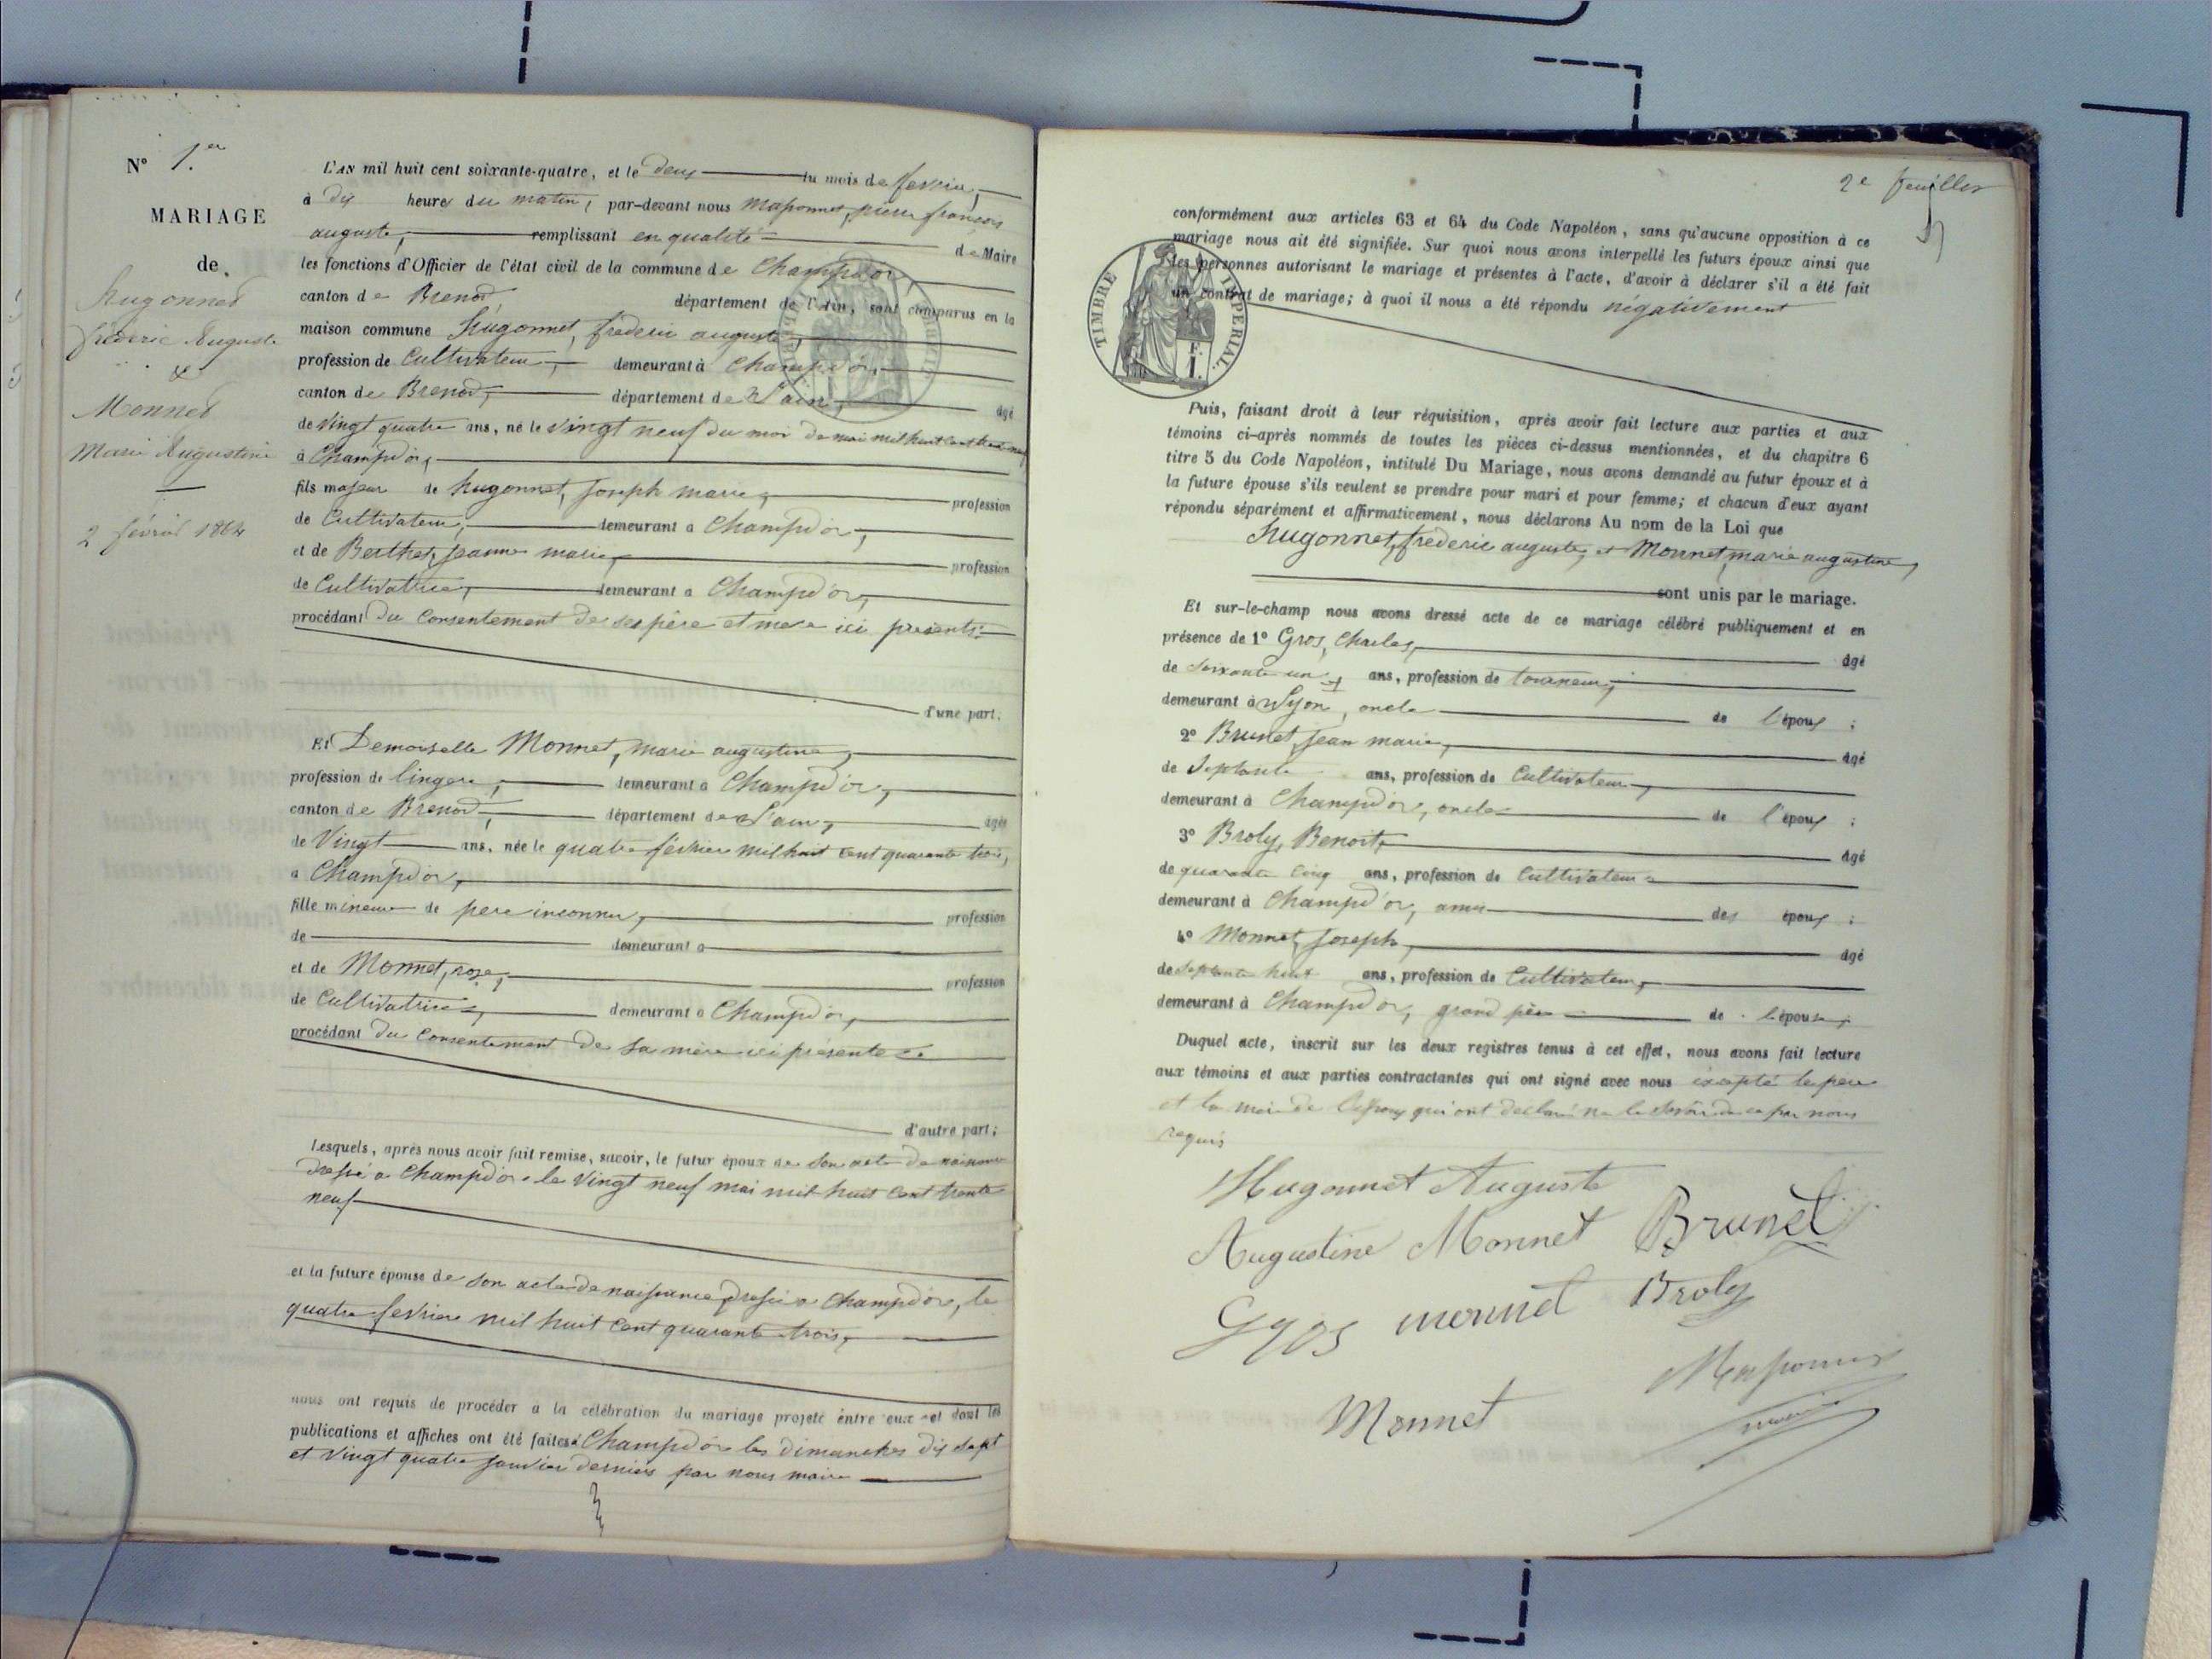 N° 1.er
MARIAGE
de
hugonnet
Frédéric Auguste
&
Monnet
Marie Augustine
2 février 1864
L'AN mil huit cent soixante-quatre, et le deux du mois de fevrier,
à dix heures du matin, par-devant nous Massonnet, pierre françois
auguste, remplissant en qualité de Maire
les fonctions d'Officier de l'état civil de la commune de Champdor
canton de Brenod, département de l'Ain, sont comparus en la
maison commune hugonnet, frederic auguste,
profession de Cultivateur, demeurant à Champdor,
canton de Brenod, département de L'ain, âgé
de Vingt quatre ans, né le Vingt neuf du moi de mai mil huit cent trente neuf
à Champdor,
fils majeur de hugonnet, Joseph marie, profession
de Cultivateur, demeurant à Champdor,
et de Berthet, jeanne marie, profession
de Cultivatrice, demeurant à Champdor,
procédant du Consentement de ses père et mere ici presents
d'une part.
Et Demoiselle Monnet, marie augustine,
profession de lingere, demeurant à Champdor,
canton de Brenod, département de L'ain, âgée
de Vingt ans, née le quatre fevrier mil huit cent quarante trois,
à Champdor,
fille mineure de pere inconnu, profession
de demeurant à
et de Monnet, roze, profession
de Cultivatrice, demeurant à Champdor,
procédant du Consentement de sa mère ici présente
d'autre part;
Lesquels, après nous avoir fait remise, savoir, le futur époux de son acte de naissance
dressé a Champdor le Vingt neuf mai mil huit Cent trente
neuf
et la future épouse de son acte de naissance dressé a Champdor, le
quatre fevrier mil huit Cent quarante trois,
nous ont requis de procéder à la célébration du mariage projeté entre eux et dont les
publications et affiches ont été faites à Champdor les dimanches dix sept
et Vingt quatre janvier derniers par nous maire
2e feuillet
conformément aux articles 63 et 64 du Code Napoléon, sans qu'aucune opposition à ce
mariage nous ait été signifiée. Sur quoi nous avons interpellé les futurs époux ainsi que
les personnes autorisant le mariage et présentes à l'acte, d'avoir à déclarer s'il a été fait
un contrat de mariage; à quoi il nous a été répondu négativement
TIMBRE IMPERIAL.
Puis, faisant droit à leur réquisition, après avoir fait lecture aux parties et aux
témoins ci-après nommés de toutes les pièces ci-dessus mentionnées, et du chapitre 6
titre 5 du Code Napoléon, intitulé Du Mariage, nous avons demandé au futur époux et à
la future épouse s'ils veulent se prendre pour mari et pour femme; et chacun d'eux ayant
répondu séparément et affirmativement, nous déclarons Au nom de la Loi que
hugonnet, frederic auguste, et Monnet, marie augustine,
sont unis par le mariage.
Et sur-le-champ nous avons dressé acte de ce mariage célébré publiquement et en
présence de 1° Gros, Charles, âgé
de Soixante un ans, profession de tourneur,
demeurant à Lyon, oncle de l'époux;
2° Brunet, Jean marie, âgé
de Septante ans, profession de Cultivateur,
demeurant à Champdor, oncle de l'époux;
3° Broly, Benoit, âgé
de quarante Cinq ans, profession de Cultivateur
demeurant à Champdor, amis des époux;
4° Monnet, Joseph, âgé
de Septante huit ans, profession de Cultivateur,
demeurant à Champdor, grand père de l'épouse;
Duquel acte, inscrit sur les deux registres tenus à cet effet, nous avons fait lecture
aux témoins et aux parties contractantes qui ont signé avec nous excepté le pere
et la mere de l'epoux qui ont declaré ne le Savoir de ce par nous
requis
Hugonnet Auguste
Augustine Monnet Brunet
Gros monnet Broly
Monnet Massonnet
maire